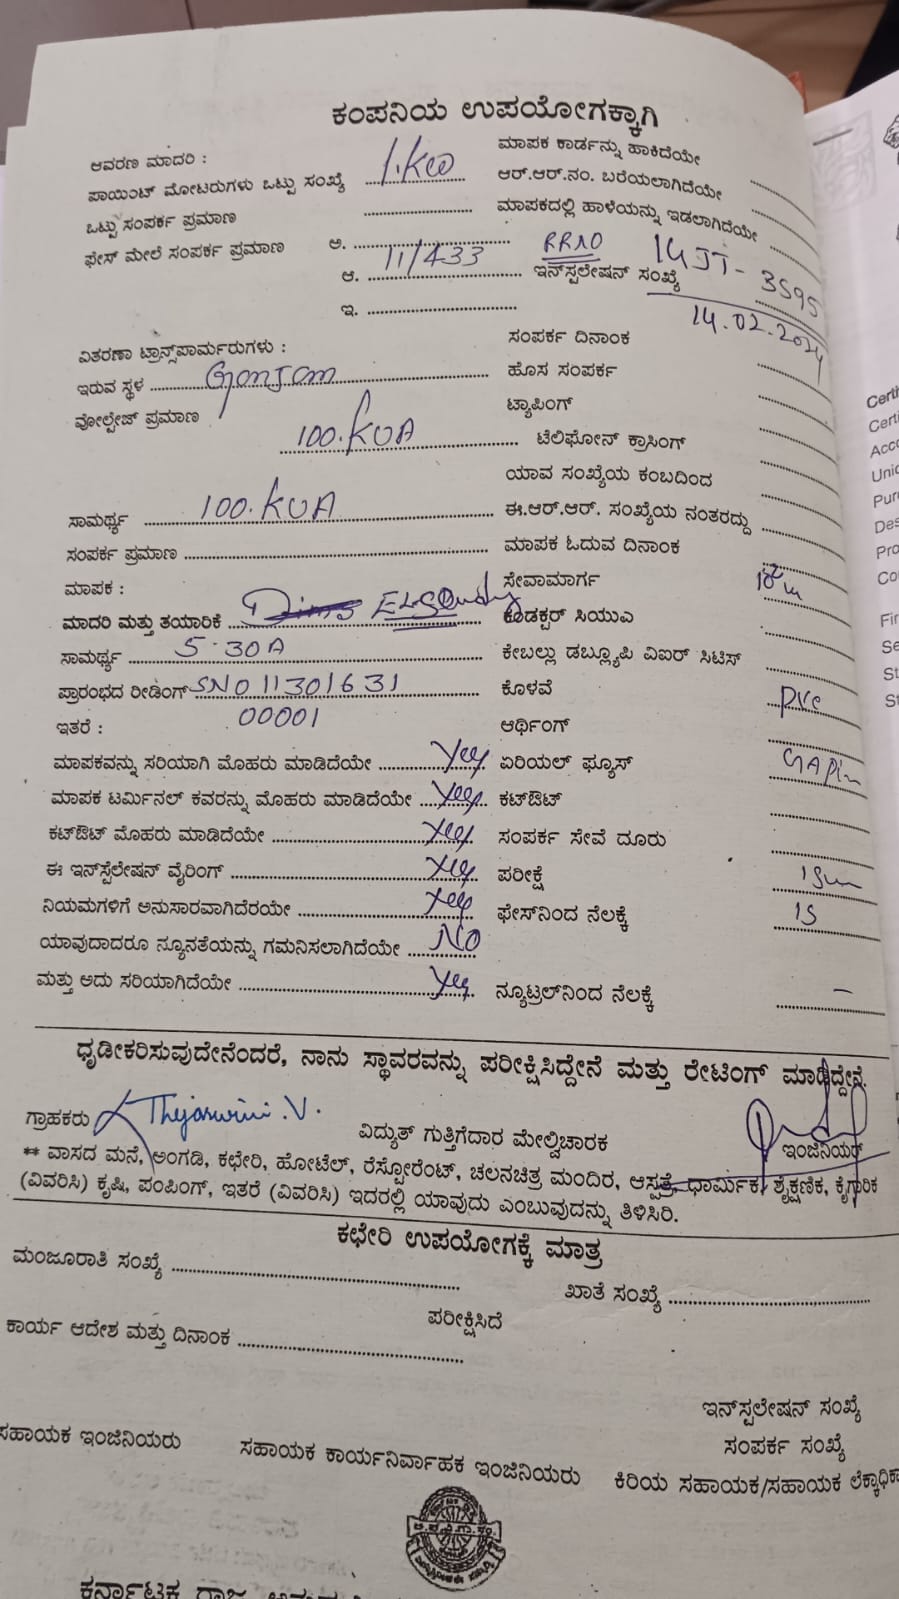 ಕಂಪನಿಯ ಉಪಯೋಗಕ್ಕಾಗಿ
ಆವರಣ ಮಾದರಿ :
ಪಾಯಿಂಟ್ ಮೋಟರುಗಳು ಒಟ್ಟು ಸಂಖ್ಯೆ
ಒಟ್ಟು ಸಂಪರ್ಕ ಪ್ರಮಾಣ
ಫೇಸ್ ಮೇಲೆ ಸಂಪರ್ಕ ಪ್ರಮಾಣ ಅ.
ಆ. 11/433
ಇ.
ವಿತರಣಾ ಟ್ರಾನ್ಸ್‌ಪಾರ್ಮರುಗಳು :
ಇರುವ ಸ್ಥಳ
ವೋಲ್ಟೇಜ್ ಪ್ರಮಾಣ
100.KVA
ಸಾಮರ್ಥ್ಯ 100.KVA
ಸಂಪರ್ಕ ಪ್ರಮಾಣ
ಮಾಪಕ :
ಮಾದರಿ ಮತ್ತು ತಯಾರಿಕೆ
ಸಾಮರ್ಥ್ಯ 5-30A
ಪ್ರಾರಂಭದ ರೀಡಿಂಗ್ SNO 11301631
ಇತರೆ : 00001
ಮಾಪಕವನ್ನು ಸರಿಯಾಗಿ ಮೊಹರು ಮಾಡಿದೆಯೇ Yes
ಮಾಪಕ ಟರ್ಮಿನಲ್ ಕವರನ್ನು ಮೊಹರು ಮಾಡಿದೆಯೇ Yes
ಕಟ್‌ಔಟ್ ಮೊಹರು ಮಾಡಿದೆಯೇ Yes
ಈ ಇನ್‌ಸ್ಪೆಲೇಷನ್ ವೈರಿಂಗ್ Yes
ನಿಯಮಗಳಿಗೆ ಅನುಸಾರವಾಗಿದೆರಯೇ Yes
ಯಾವುದಾದರೂ ನ್ಯೂನತೆಯನ್ನು ಗಮನಿಸಲಾಗಿದೆಯೇ NO
ಮತ್ತು ಅದು ಸರಿಯಾಗಿದೆಯೇ Yes
ಮಾಪಕ ಕಾರ್ಡನ್ನು ಹಾಕಿದೆಯೇ
ಆರ್.ಆರ್.ನಂ. ಬರೆಯಲಾಗಿದೆಯೇ
ಮಾಪಕದಲ್ಲಿ ಹಾಳೆಯನ್ನು ಇಡಲಾಗಿದೆಯೇ
RRNO
ಇನ್‌ಸ್ಪಲೇಷನ್ ಸಂಖ್ಯೆ
14.02.2024
ಸಂಪರ್ಕ ದಿನಾಂಕ
ಹೊಸ ಸಂಪರ್ಕ
ಟ್ಯಾಪಿಂಗ್
ಟೆಲಿಫೋನ್ ಕ್ರಾಸಿಂಗ್
ಯಾವ ಸಂಖ್ಯೆಯ ಕಂಬದಿಂದ
ಈ.ಆರ್.ಆರ್. ಸಂಖ್ಯೆಯ ನಂತರದ್ದು
ಮಾಪಕ ಓದುವ ದಿನಾಂಕ
ಸೇವಾಮಾರ್ಗ
ಕೂಡಕ್ಟರ್ ಸಿಯುಎ
ಕೇಬಲ್ಲು ಡಬ್ಲ್ಯೂಪಿ ವಿಐರ್ ಸಿಟಿಸ್
ಕೊಳವೆ PVC
ಆರ್ಥಿಂಗ್
ಏರಿಯಲ್ ಫ್ಯೂಸ್
ಕಟ್‌ಔಟ್
ಸಂಪರ್ಕ ಸೇವೆ ದೂರು
ಪರೀಕ್ಷೆ
ಫೇಸ್‌ನಿಂದ ನೆಲಕ್ಕೆ 15
ನ್ಯೂಟ್ರಲ್‌ನಿಂದ ನೆಲಕ್ಕೆ –
ಧೃಡೀಕರಿಸುವುದೇನೆಂದರೆ, ನಾನು ಸ್ಥಾವರವನ್ನು ಪರೀಕ್ಷಿಸಿದ್ದೇನೆ ಮತ್ತು ರೇಟಿಂಗ್ ಮಾಡಿದ್ದೇನೆ.
ಗ್ರಾಹಕರು Thejaswini.V.
ವಿದ್ಯುತ್ ಗುತ್ತಿಗೆದಾರ ಮೇಲ್ವಿಚಾರಕ
ಇಂಜಿನಿಯರ್
** ವಾಸದ ಮನೆ, ಅಂಗಡಿ, ಕಛೇರಿ, ಹೋಟೆಲ್, ರೆಸ್ಟೋರೆಂಟ್, ಚಲನಚಿತ್ರ ಮಂದಿರ, ಆಸ್ಪತ್ರೆ, ಧಾರ್ಮಿಕ, ಶೈಕ್ಷಣಿಕ, ಕೈಗಾರಿಕ
(ವಿವರಿಸಿ) ಕೃಷಿ, ಪಂಪಿಂಗ್, ಇತರೆ (ವಿವರಿಸಿ) ಇದರಲ್ಲಿ ಯಾವುದು ಎಂಬುವುದನ್ನು ತಿಳಿಸಿರಿ.
ಕಛೇರಿ ಉಪಯೋಗಕ್ಕೆ ಮಾತ್ರ
ಮಂಜೂರಾತಿ ಸಂಖ್ಯೆ
ಖಾತೆ ಸಂಖ್ಯೆ
ಪರೀಕ್ಷಿಸಿದೆ
ಕಾರ್ಯ ಆದೇಶ ಮತ್ತು ದಿನಾಂಕ
ಇನ್‌ಸ್ಪಲೇಷನ್ ಸಂಖ್ಯೆ
ಸಂಪರ್ಕ ಸಂಖ್ಯೆ
ಸಹಾಯಕ ಇಂಜಿನಿಯರು
ಸಹಾಯಕ ಕಾರ್ಯನಿರ್ವಾಹಕ ಇಂಜಿನಿಯರು
ಕಿರಿಯ ಸಹಾಯಕ/ಸಹಾಯಕ